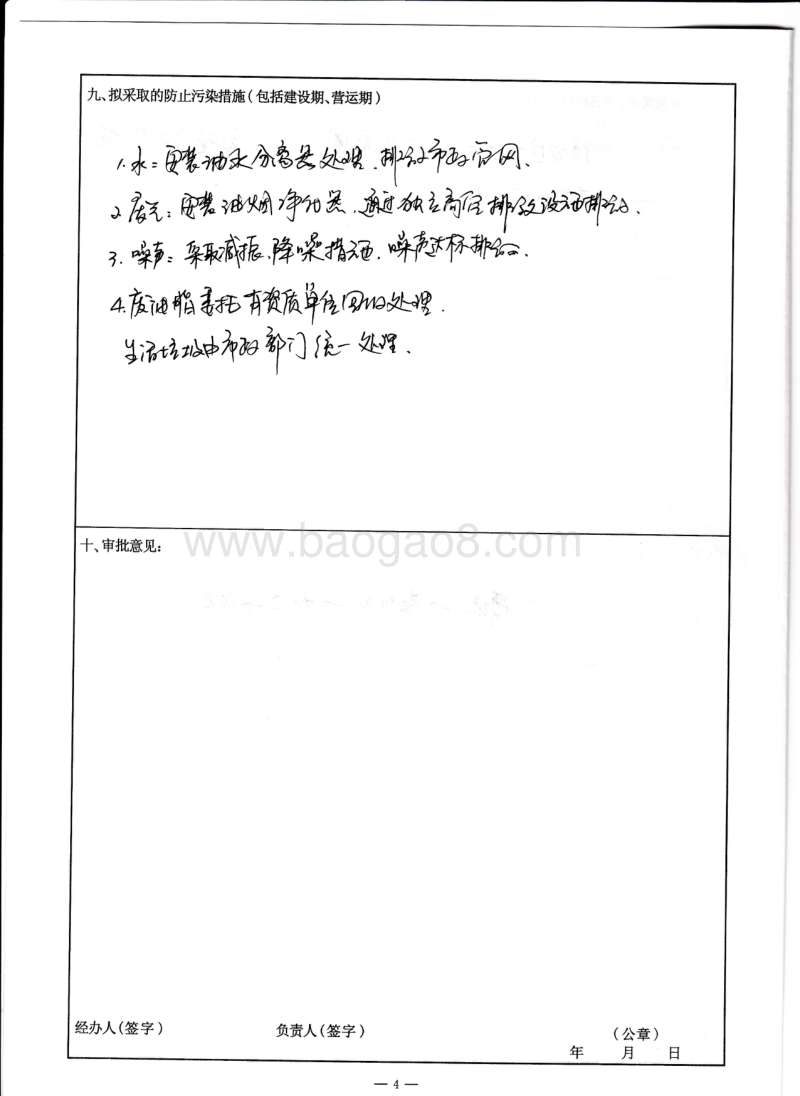 九、拟采取的防止污染措施（包括建设期、营运期）
1. 水：安装油水分离器处理、排入市政管网.
2 废气：安装油烟净化器、通过独立高空排放设施排放.
3. 噪声：采取减振、降噪措施、噪声达标排放.
4. 废油脂委托有资质单位回收处理.
生活垃圾由市政部门统一处理.
十、审批意见：
www.baogao8.com
经办人（签字）
负责人（签字）
（公章）
年 月 日
— 4 —